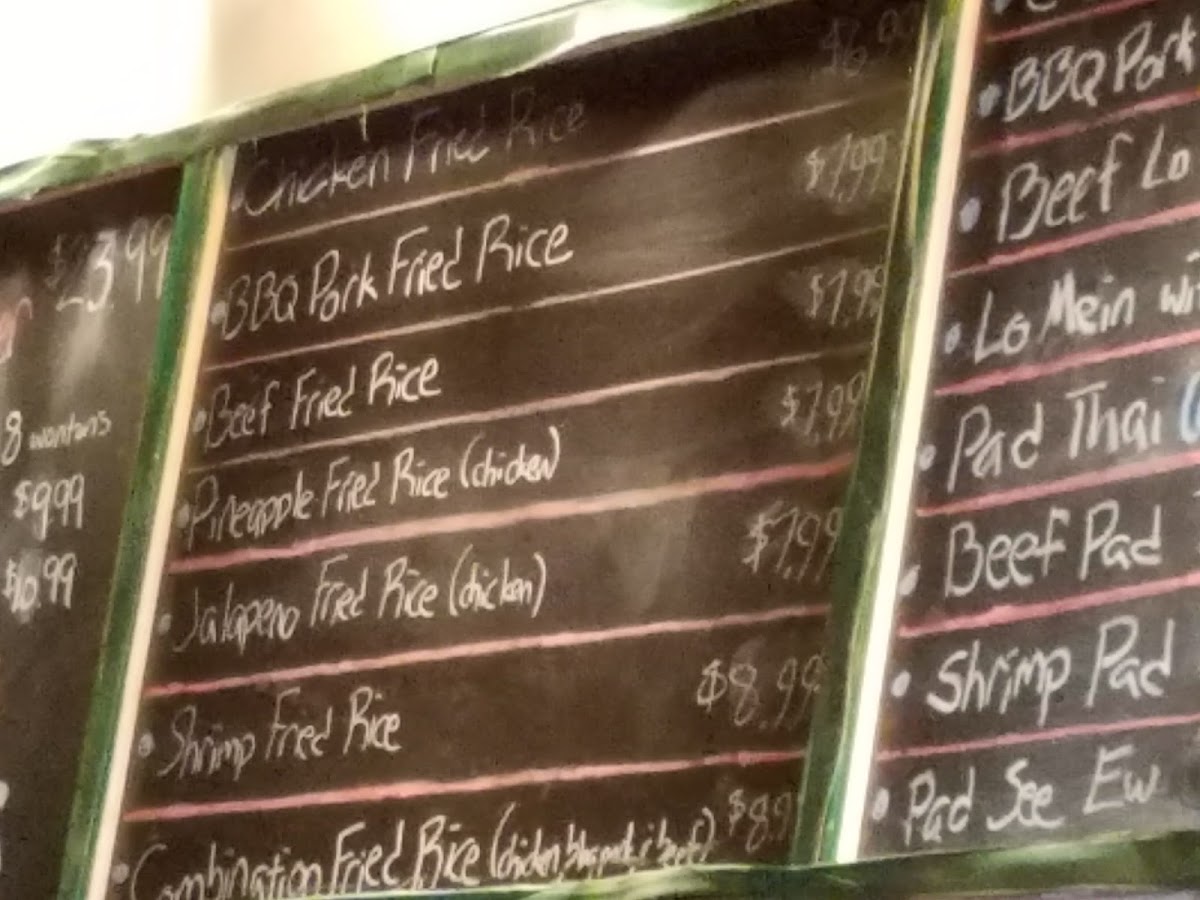 $23.99
8 wontons
$9.99
$6.99
• Chicken Fried Rice $6.99
• BBQ Pork Fried Rice $7.99
• Beef Fried Rice $7.99
• Pineapple Fried Rice (chicken) $7.99
• Jalapeno Fried Rice (chicken) $7.99
• Shrimp Fried Rice $8.99
• Combination Fried Rice (chicken, bbq pork, & beef) $8.9
• BBQ Pork
• Beef Lo
• Lo Mein wi
• Pad Thai
• Beef Pad
• Shrimp Pad
• Pad See Ew